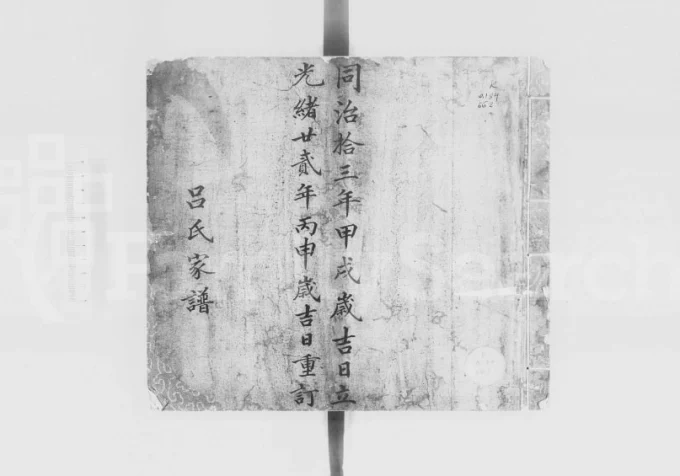 同治拾三年甲戌歲吉日立
光緒廿貳年丙申歲吉日重訂
呂氏家譜
FamilySearch